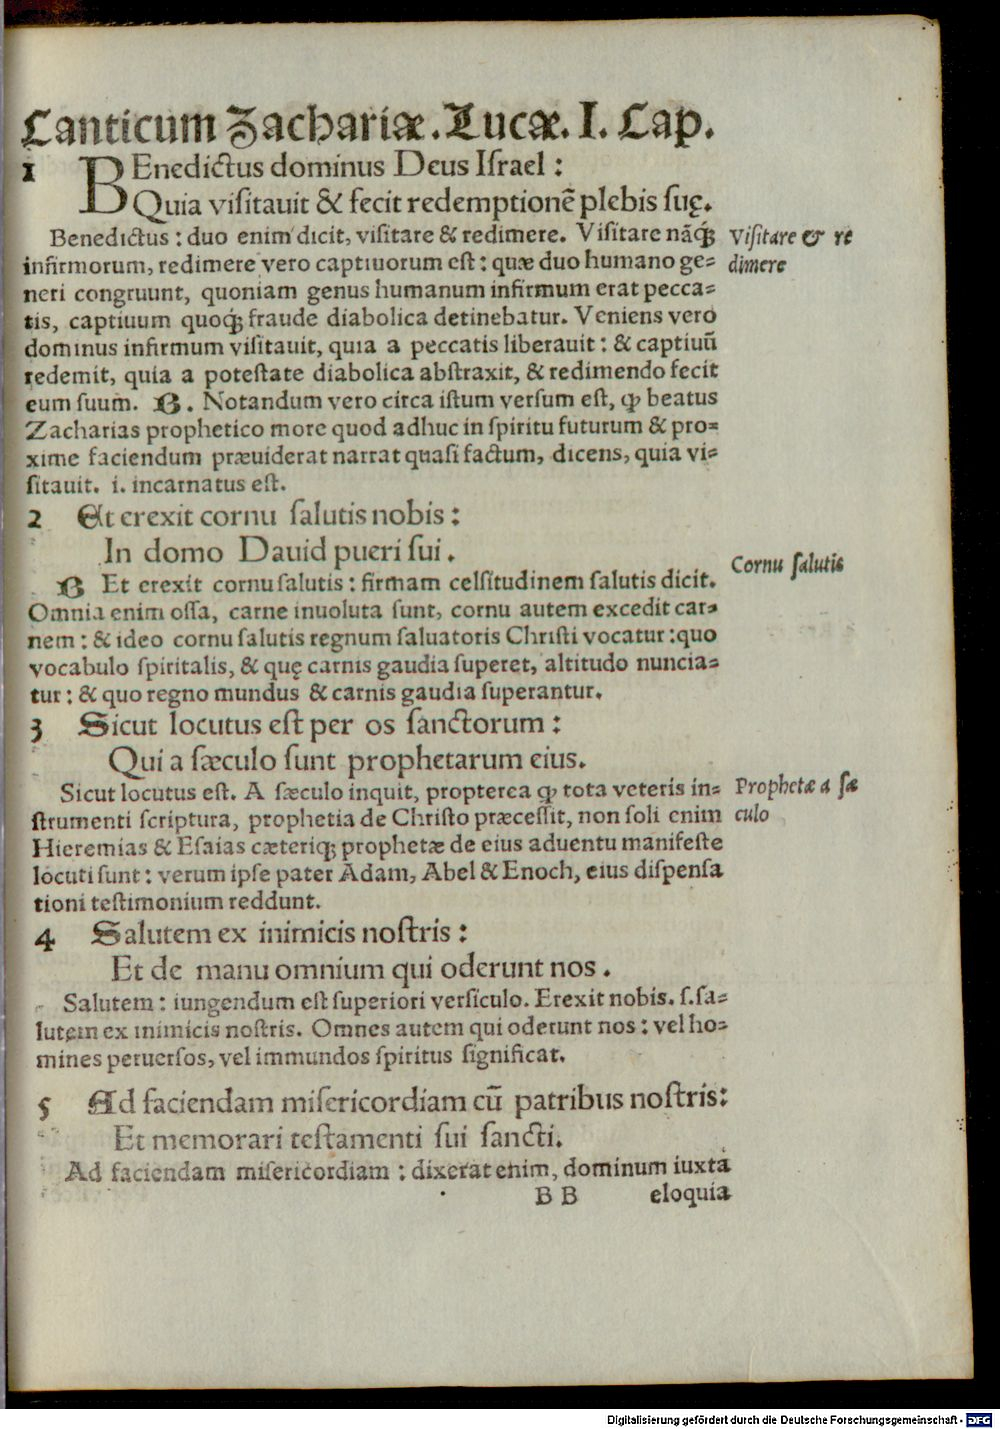 Canticum Zachariæ. Lucæ. I. Cap.
1 BEnedictus dominus Deus Iſrael:
Quia viſitauit & fecit redemptionē plebis ſuę.
Benedictus: duo enim dicit, viſitare & redimere. Viſitare nāq́ꝫ
infirmorum, redimere vero captiuorum eſt: quæ duo humano ge-
neri congruunt, quoniam genus humanum infirmum erat pecca-
tis, captiuum quoq́ꝫ fraude diabolica detinebatur. Veniens vero
dominus infirmum viſitauit, quia a peccatis liberauit: & captiuū
redemit, quia a poteſtate diabolica abſtraxit, & redimendo fecit
eum ſuum. B. Notandum vero circa iſtum verſum eſt, ꝙ beatus
Zacharias prophetico more quod adhuc in ſpiritu futurum & pro-
xime faciendum præuiderat narrat quaſi factum, dicens, quia vi-
ſitauit. i. incarnatus eſt.
Viſitare & re
dimere
2 Et erexit cornu ſalutis nobis:
In domo Dauid pueri ſui.
B Et erexit cornu ſalutis: firmam celſitudinem ſalutis dicit.
Omnia enim oſſa, carne inuoluta ſunt, cornu autem excedit car-
nem: & ideo cornu ſalutis regnum ſaluatoris Chriſti vocatur: quo
vocabulo ſpiritalis, & quę carnis gaudia ſuperet, altitudo nuncia-
tur: & quo regno mundus & carnis gaudia ſuperantur.
Cornu ſalutis
3 Sicut locutus eſt per os ſanctorum:
Qui a ſæculo ſunt prophetarum eius.
Sicut locutus eſt. A ſæculo inquit, propterea ꝙ tota veteris in-
ſtrumenti ſcriptura, prophetia de Chriſto præceſſit, non ſoli enim
Hieremias & Eſaias cæteriqꝫ prophetæ de eius aduentu manifeſte
locuti ſunt: verum ipſe pater Adam, Abel & Enoch, eius diſpenſa
tioni teſtimonium reddunt.
Prophetæ a ſæ
culo
4 Salutem ex inimicis noſtris:
Et de manu omnium qui oderunt nos.
Salutem: iungendum eſt ſuperiori verſiculo. Erexit nobis. ſ. ſa-
lutem ex inimicis noſtris. Omnes autem qui oderunt nos: vel ho-
mines peruerſos, vel immundos ſpiritus ſignificat.
5 Ad faciendam miſericordiam cū patribus noſtris:
Et memorari teſtamenti ſui ſancti.
Ad faciendam miſericordiam: dixerat enim, dominum iuxta
BB eloquia
Digitalisierung gefördert durch die Deutsche Forschungsgemeinschaft - DFG